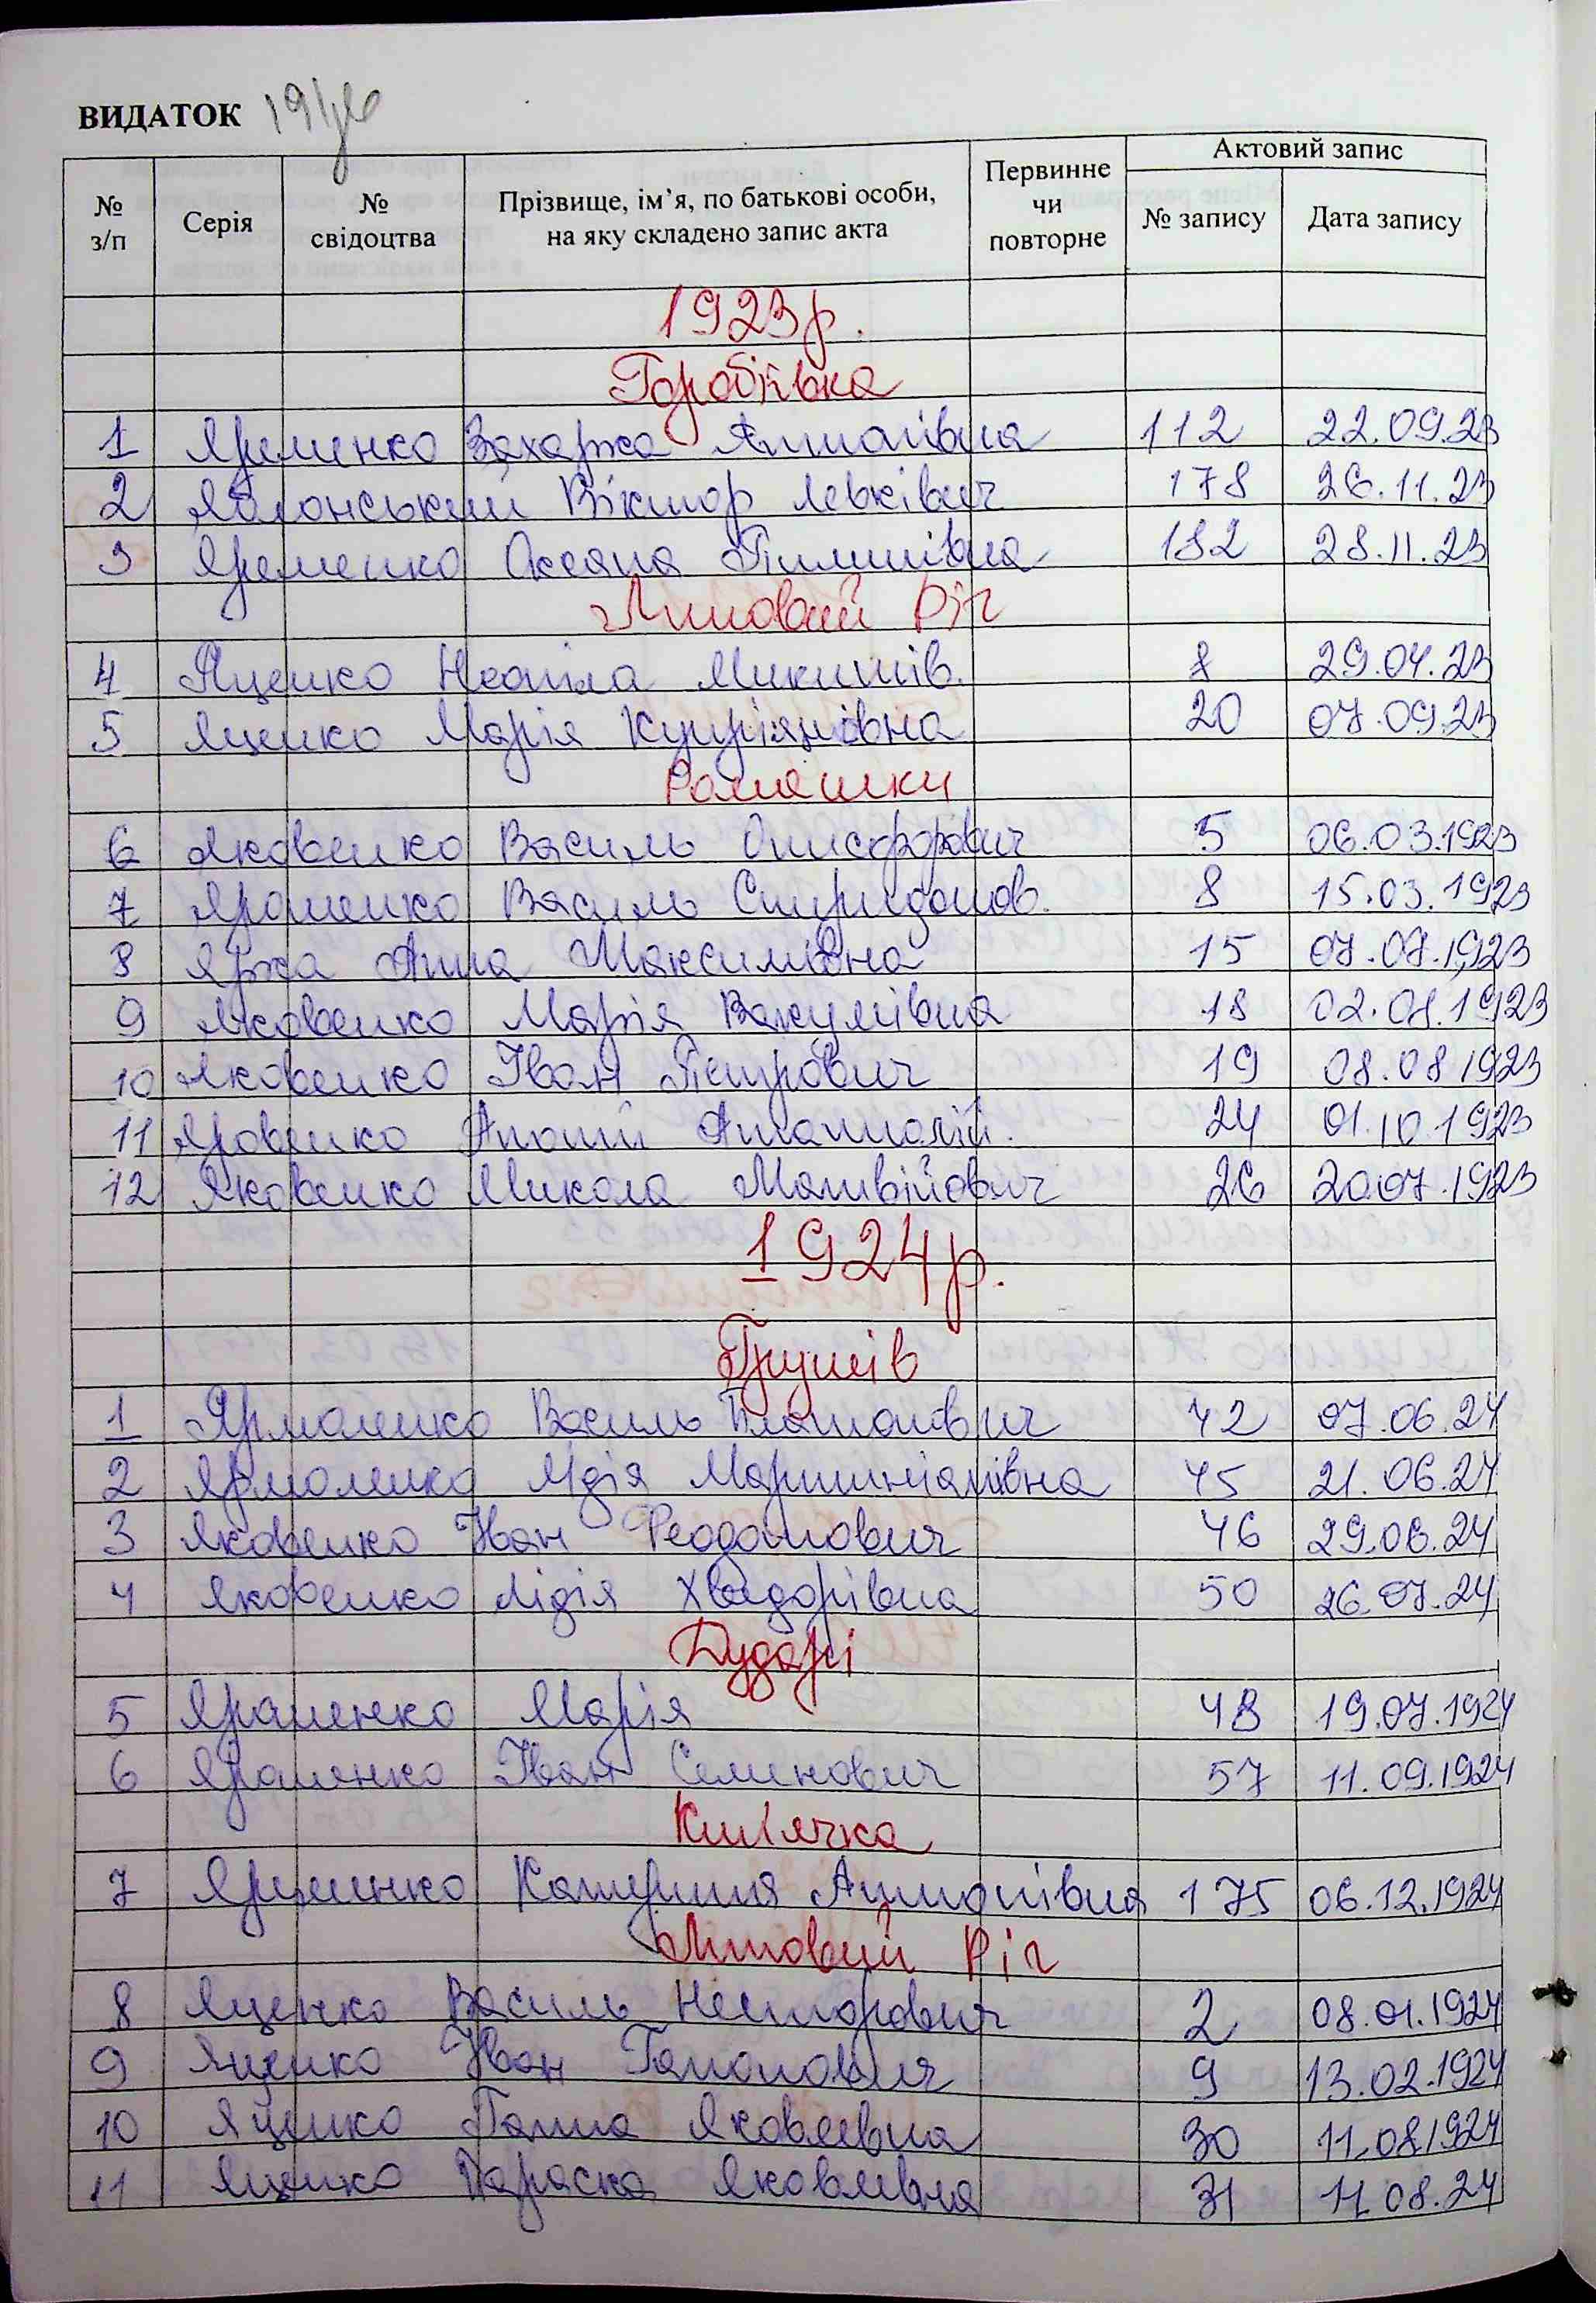 ВИДАТОК
№ з/п
Серія
№ свідоцтва
Прізвище, ім'я, по батькові особи, на яку складено запис акта
Первинне чи повторне
Актовий запис
№ запису
Дата запису
1923р.
Горобіївка
1 Яременко Захарка 112 22.09.23
2 Яблонський Віктор Левківич 178 26.11.23
3 Яременко Оксана Пилипівна 182 28.11.23
Липовий Ріг
4 Яценко Неоніла Микитів. 8 29.04.23
5 Яценко Марія Купріянівна 20 07.09.23
Ромашки
6 Яковенко Василь Онисфорович 5 06.03.1923
7 Яроменко Василь Спиридонов. 8 15.03.1923
8 Ярка Анна Максимівна 15 07.07.1923
9 Яковенко Марія Вакулівна 18 02.08.1923
10 Яковенко Іван Петрович 19 08.08 1923
11 Яровенко 24 01.10.1923
12 Яковенко Микола Матвійович 26 20.07.1923
1924р.
Грушів
1 Ярмоленко Василь Платонович 42 07.06.24
2 Ярмоленко Лідія Мартиніанівна 45 21.06.24
3 Яковенко Іван Феодотович 46 29.06.24
4 Яковенко Лідія Хведорівна 50 26.07.24
Дударі
5 Яроменко Марія 48 19.07.1924
6 Яроменко Іван Семенович 57 11.09.1924
Кип'ячка
7 Яременко Катерина Антонівна 175 06.12.1924
Липовий Ріг
8 Яценко Василь Несторович 2 08.01.1924
9 Яценко Іван 9 13.02.1924
10 Яценко Ганна Яковлевна 30 11.08.1924
11 Яценко Параска Яковлевна 31 11.08.24